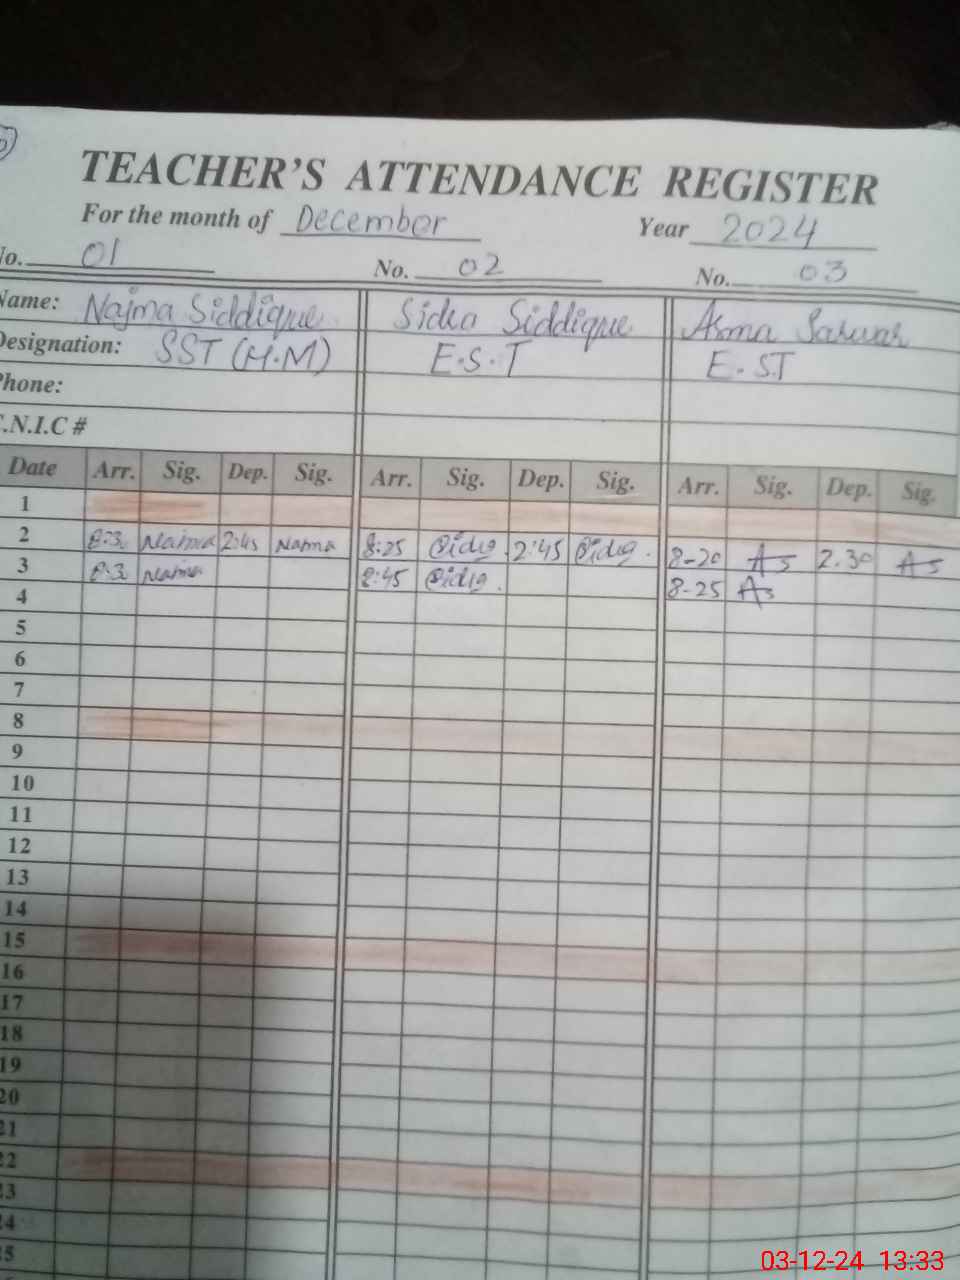 TEACHER'S ATTENDANCE REGISTER
For the month of December Year 2024
No. 01 No. 02 No. 03
Name: Najma Siddique Sidra Siddique Asma Sarwar
Designation: SST (H.M) E.S.T E.ST
Phone:
C.N.I.C #
Date Arr. Sig. Dep. Sig. Arr. Sig. Dep. Sig. Arr. Sig. Dep. Sig.
1
2 8:3 Najma 2:45 Najma 8:25 Sidra 2:45 Sidra. 8-20 As 2.30 As
3 8:3 Najma 8:45 Sidra. 8-25 As
4
5
6
7
8
9
10
11
12
13
14
15
16
17
18
19
20
21
22
23
24
25
03-12-24 13:33